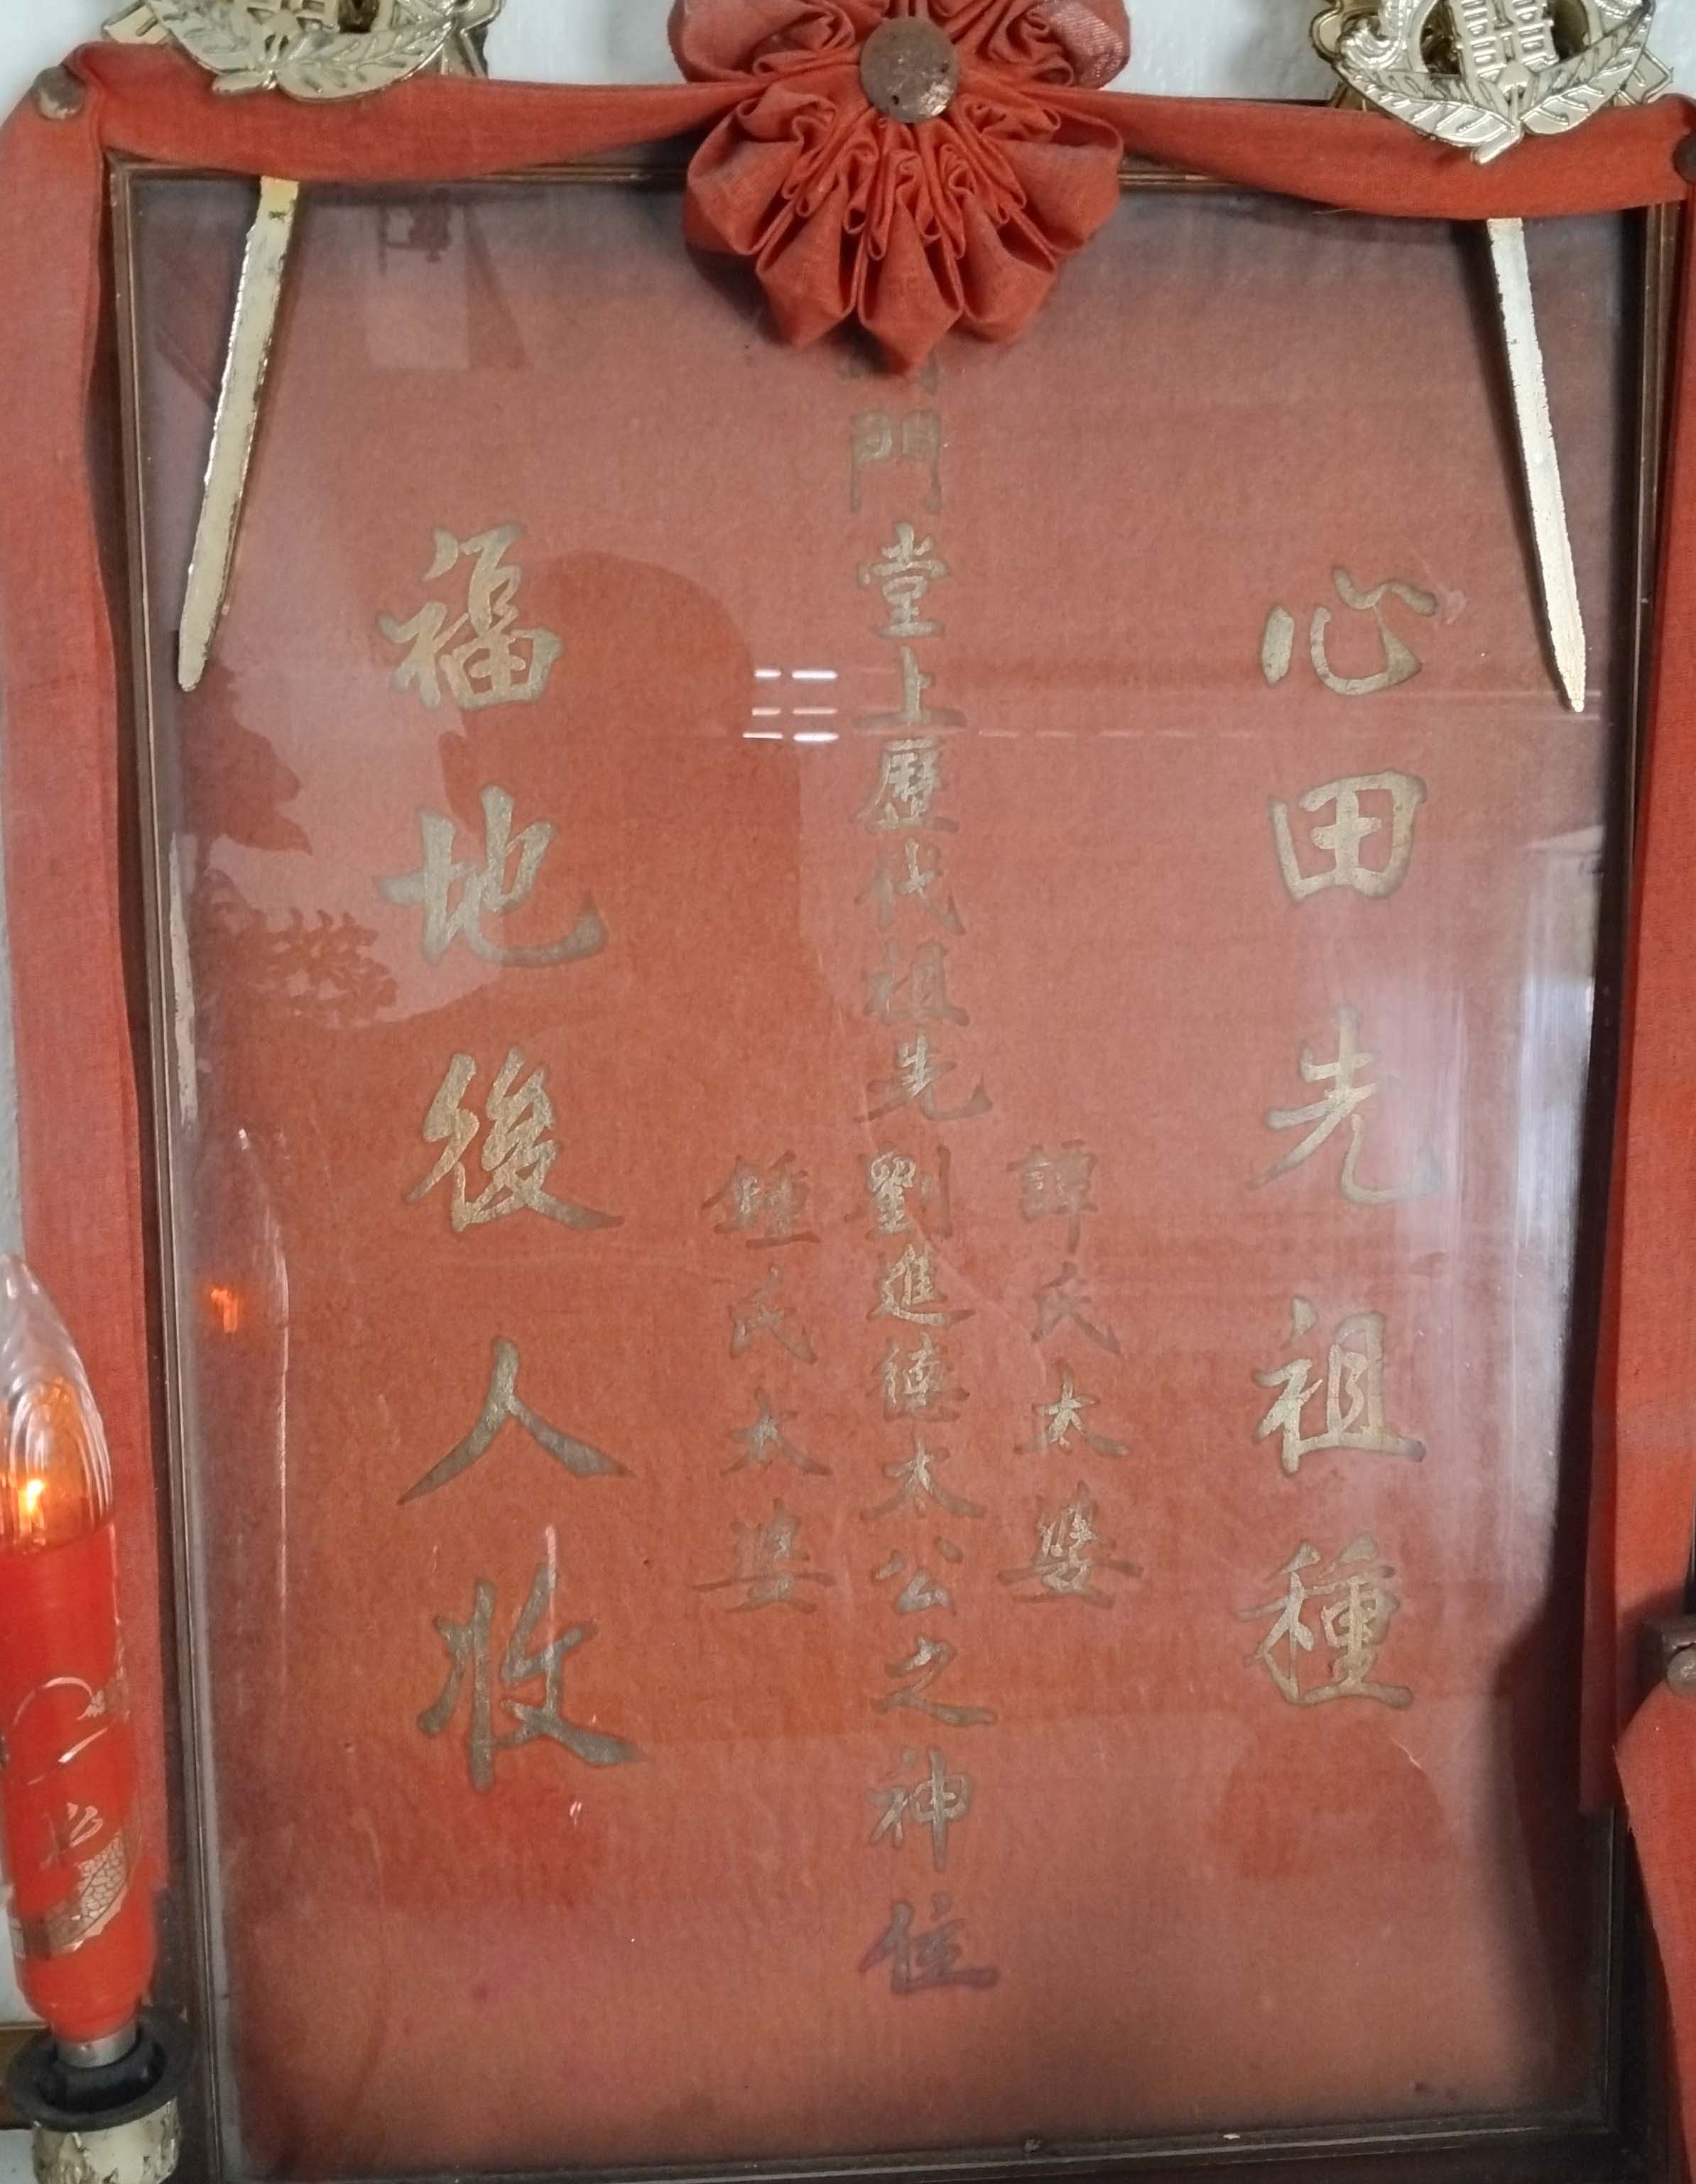 心田先祖種
譚氏太婆
門堂上歷代祖先劉進德太公之神位
鍾氏太婆
福地後人收